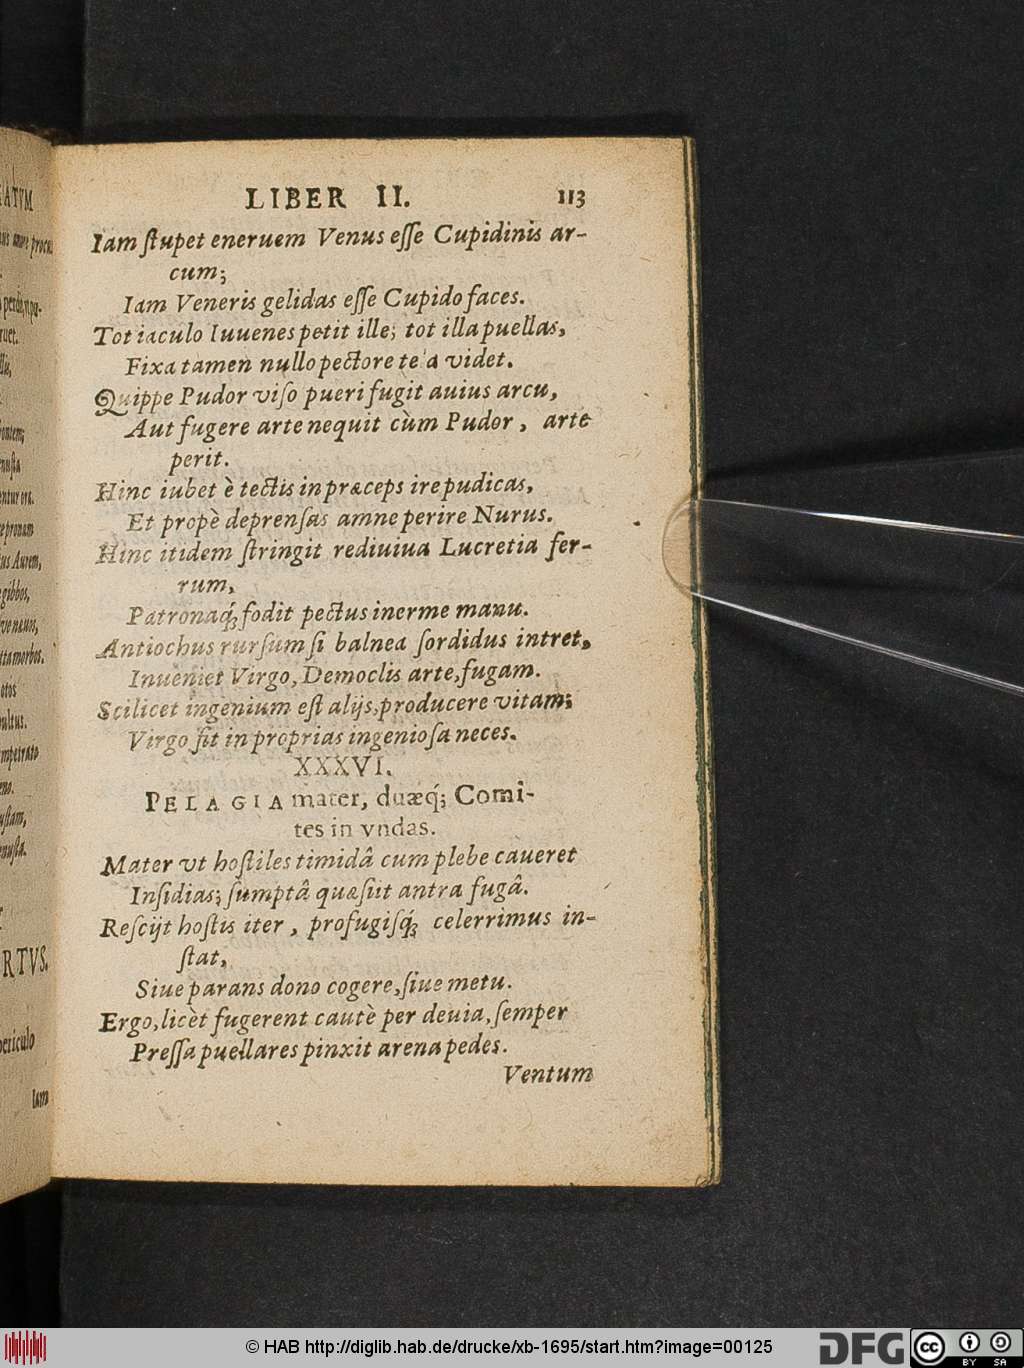 LIBER II. 113
Iam ſtupet eneruem Venus eſſe Cupidinis ar-
cum;
Iam Veneris gelidas eſſe Cupido faces.
Tot iaculo Iuuenes petit ille; tot illa puellas,
Fixa tamen nullo pectore te'a videt.
Quippe Pudor viſo pueri fugit auius arcu,
Aut fugere arte nequit cùm Pudor, arte
perit.
Hinc iubet è tectis in præceps ire pudicas,
Et propè deprenſas amne perire Nurus.
Hinc itidem ſtringit rediuiua Lucretia fer-
rum,
Patronaq́; fodit pectus inerme manu.
Antiochus rurſum ſi balnea ſordidus intret,
Inueniet Virgo, Democlis arte, fugam.
Scilicet ingenium eſt alijs, producere vitam;
Virgo fit in proprias ingenioſa neces.
XXXVI.
PELAGIA mater, duæq́; Comi-
tes in vndas.
Mater vt hoſtiles timidâ cum plebe caueret
Inſidias; ſumptâ quæſiit antra fugâ.
Reſcijt hoſtis iter, profugiſq́; celerrimus in-
ſtat,
Siue parans dono cogere, ſiue metu.
Ergo, licèt fugerent cautè per deuia, ſemper
Preſſa puellares pinxit arena pedes.
Ventum
RTVS.
Iam
© HAB http://diglib.hab.de/drucke/xb-1695/start.htm?image=00125
DFG
cc BY SA